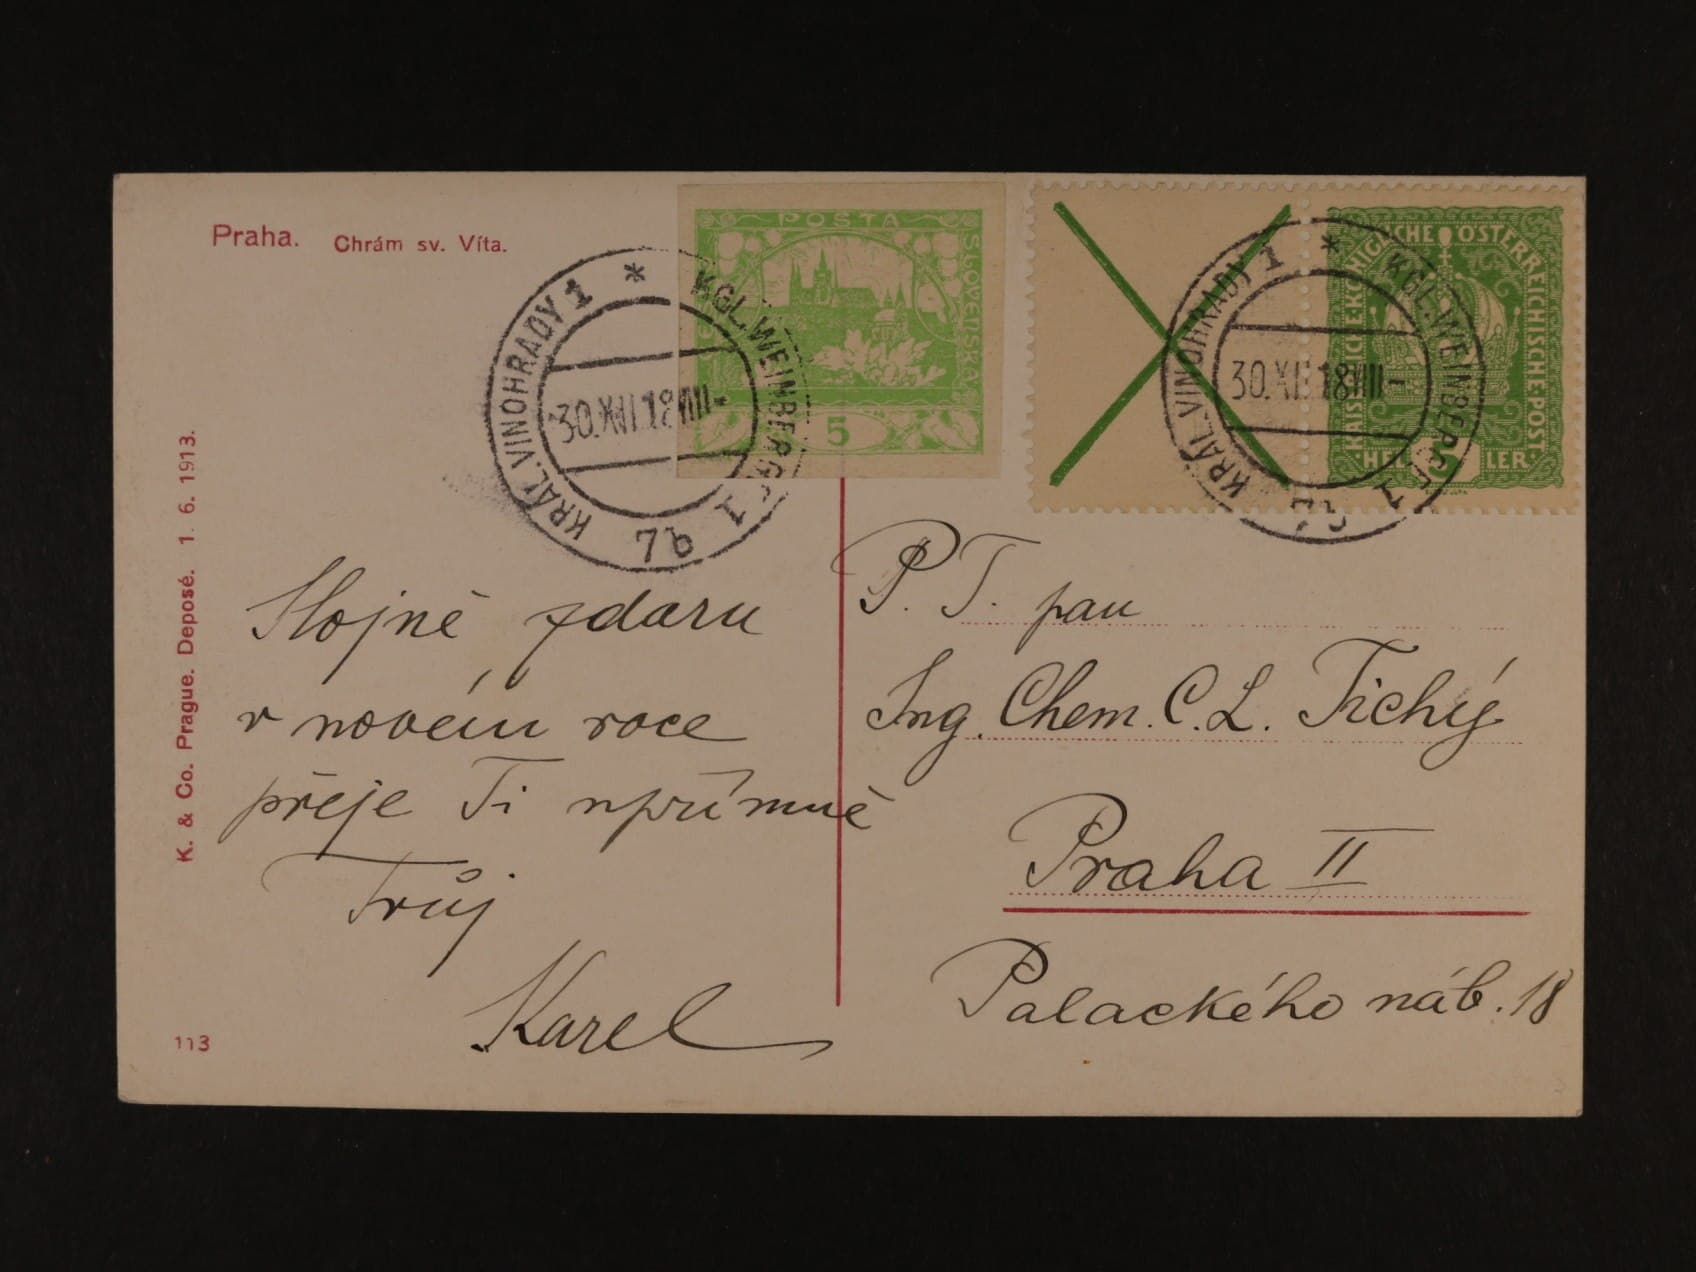 Praha. Chrám sv. Víta.
K. & Co. Prague. Deposé. 1. 6. 1913.
113
POŠTA
SLOVENSKÁ
5
KRÁL. VINOHRADY 1 * KGL. WEINBERGE 1
30.XII.18 VIII-
7b
KRÁL. VINOHRADY 1 * KGL. WEINBERGE 1
30.XII.18 VIII-
KAISERLICHE KÖNIGLICHE ÖSTERREICHISCHE POST
HELLER
Hojně zdaru
v novém roce
přeje Ti upřímně
Tvůj
Karel
P. T. pan
Ing. Chem. C. L. Tichý
Praha II
Palackého náb. 18